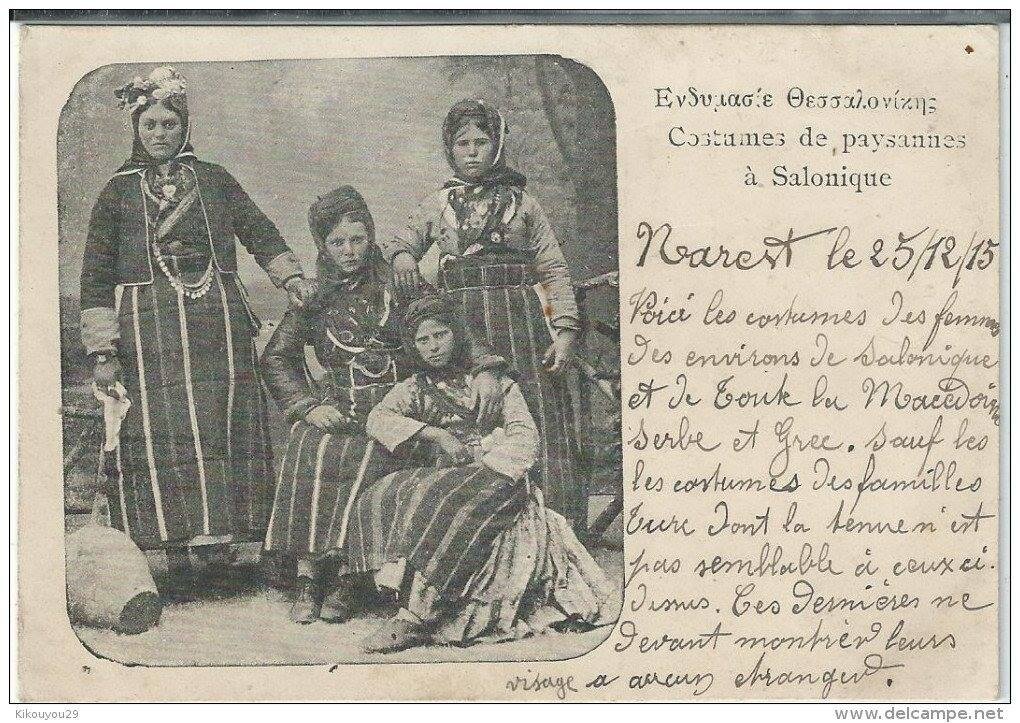 Ενδυμασίε Θεσσαλονίκης
Costumes de paysannes
à Salonique
Narest le 25/12/15
Voici les costumes des femmes
des environs de Salonique
et de toute la Macedoine
Serbe et Grec. Sauf les
les costumes des familles
turc dont la tenue n'est
pas semblable à ceux ci.
dessus. Ces dernières ne
devant montrer leurs
visage a aucun etranger.
Kikouyou29
delcampe.net